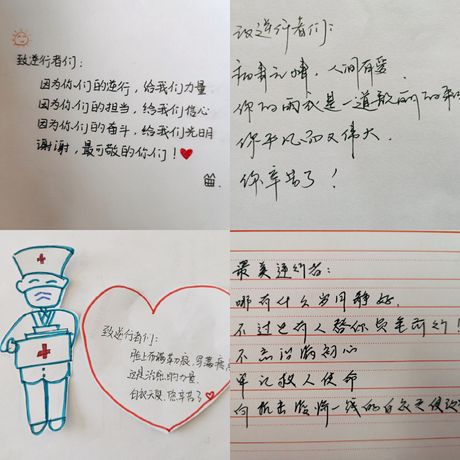 致逆行者们:
因为你们的逆行,给我们力量
因为你们的担当,给我们信心
因为你们的奋斗,给我们光明
谢谢,最可敬的你们!
致逆行者们:
病毒无情,人间有爱
是一道
你平凡而又伟大
你辛苦了!
致逆行者们:
脸上布满
的力量
白衣天使,您辛苦了
最美逆行者:
哪有什么岁月静好,
不过是有人替你负重前行!
不忘治病初心
牢记救人使命
向抗击临床一线的白衣天使致